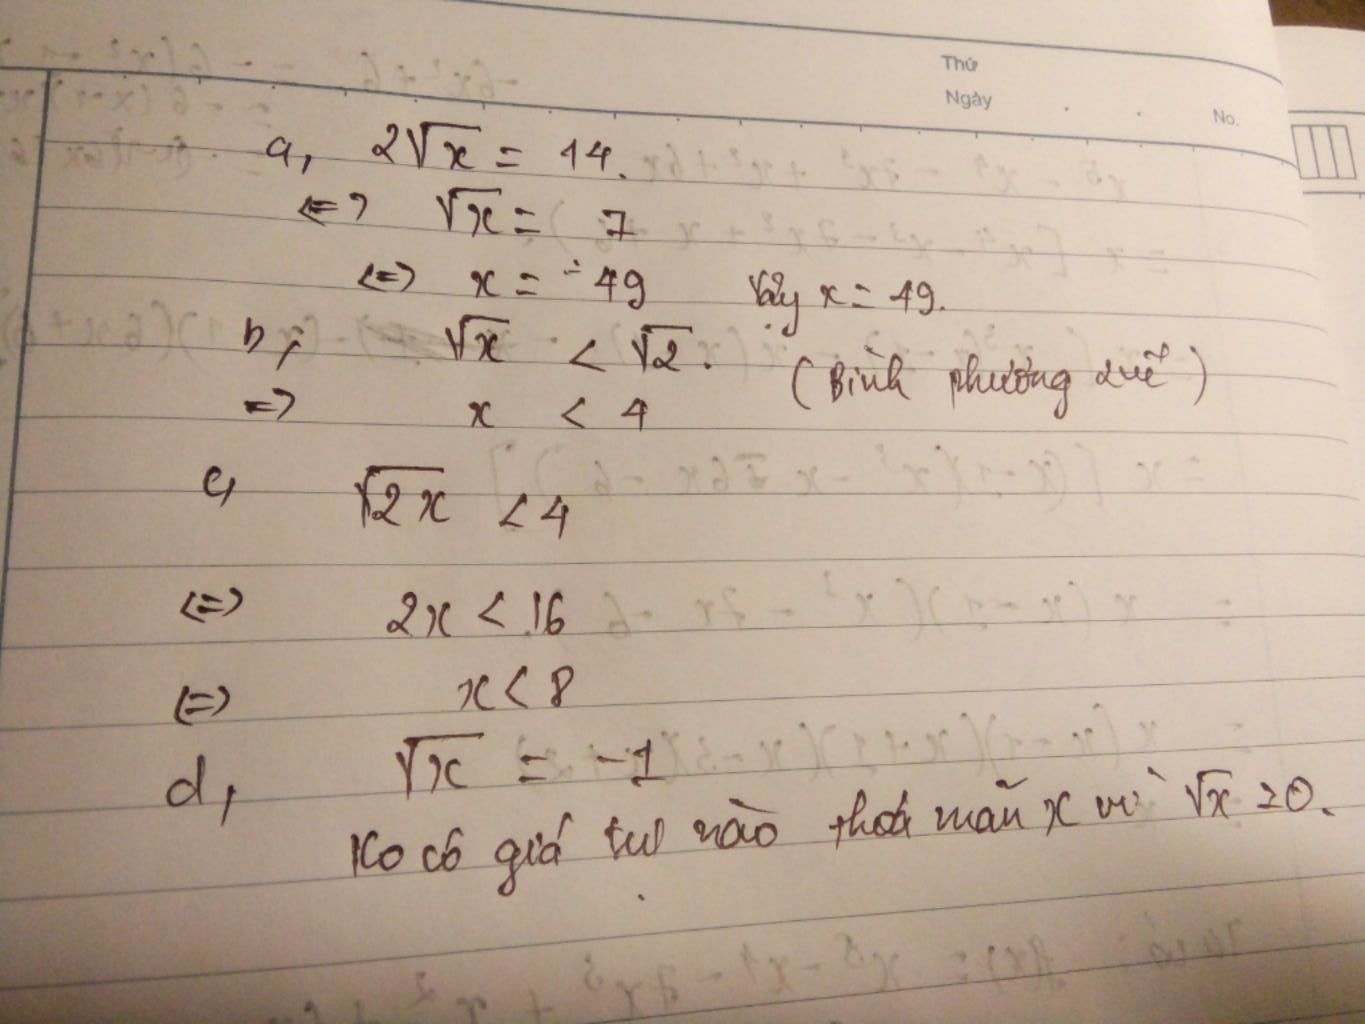 Thứ
Ngày
No.
a, 2√x = 14.
<=> √x = 7
<=> x = 49 Vậy x = 49.
b, √x < √2. (Bình phương 2 vế)
=> x < 4
c, √2x < 4
<=> 2x < 16
<=> x < 8
d, √x = -1
Ko có giá trị nào thoả mãn x vì √x ≥ 0.